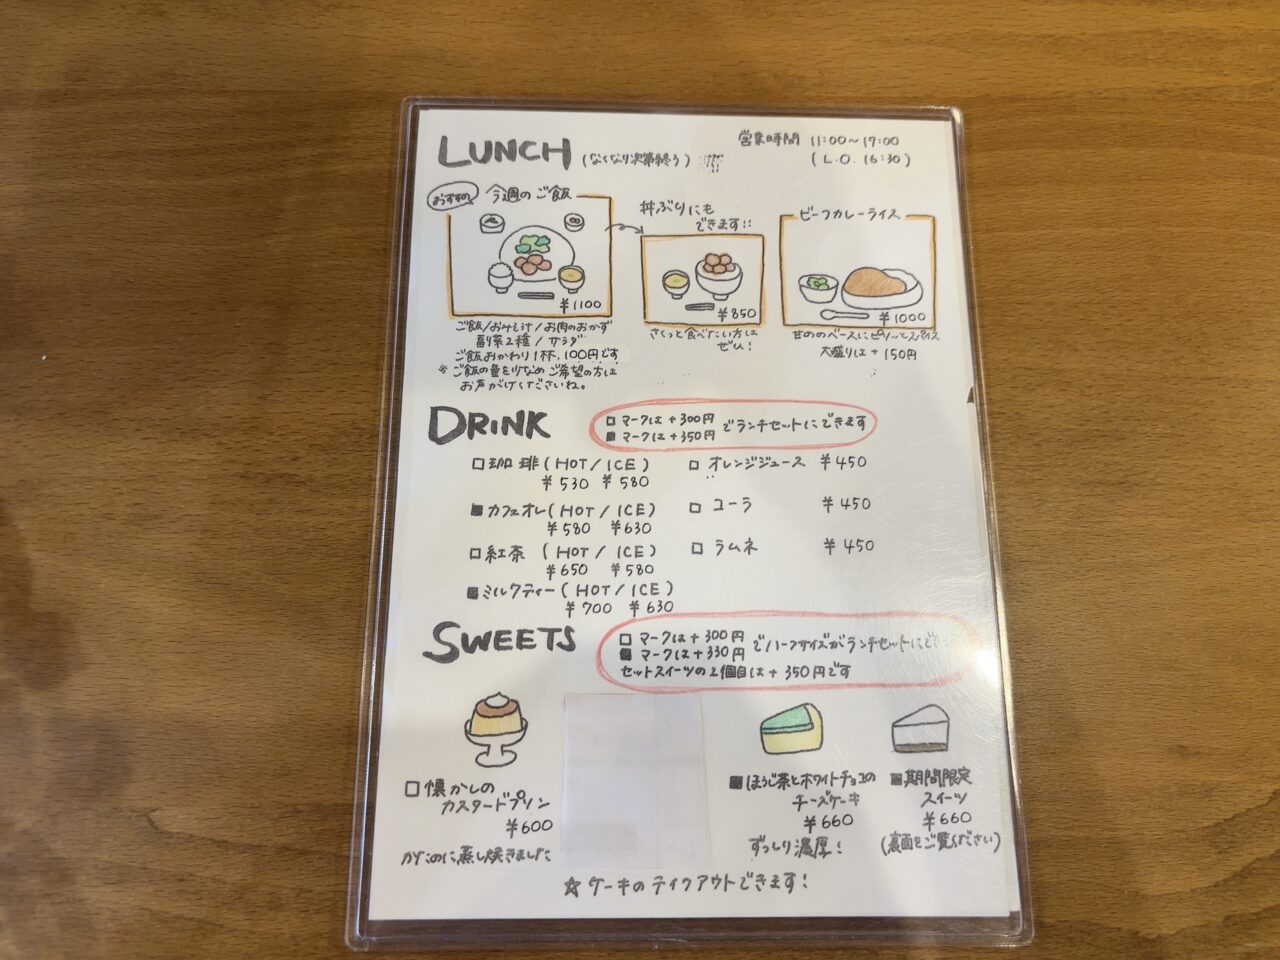 LUNCH (なくなり次第終了)
営業時間 11:00~17:00
(L.O. 16:30)
おすすめ 今週のご飯
¥1100
ご飯/おみそ汁/お肉のおかず
副菜2種/サラダ
ご飯おかわり1杯、100円です
※ご飯の量を少なめご希望の方は
お声がけくださいね。
丼ぶりにも
できます!!
¥850
さくっと食べたい方は
ぜひ!
ビーフカレーライス
¥1000
甘めのベースにピリッとスパイス
大盛りは+150円
DRINK
□マークは+300円
■マークは+350円
でランチセットにできます
□珈琲(HOT/ICE)
¥530 ¥580
■カフェオレ(HOT/ICE)
¥580 ¥630
□紅茶(HOT/ICE)
¥650 ¥580
■ミルクティー(HOT/ICE)
¥700 ¥630
□オレンジジュース ¥450
□コーラ ¥450
□ラムネ ¥450
SWEETS
□マークは+300円
■マークは+330円
でハーフサイズがランチセットにでき
セットスイーツの2個目は+350円です
□懐かしの
カスタードプリン
¥600
かために蒸し焼きました
■ほうじ茶とホワイトチョコの
チーズケーキ
¥660
ずっしり濃厚!
■期間限定
スイーツ
¥660
(裏面をご覧ください)
☆ケーキのテイクアウトできます!